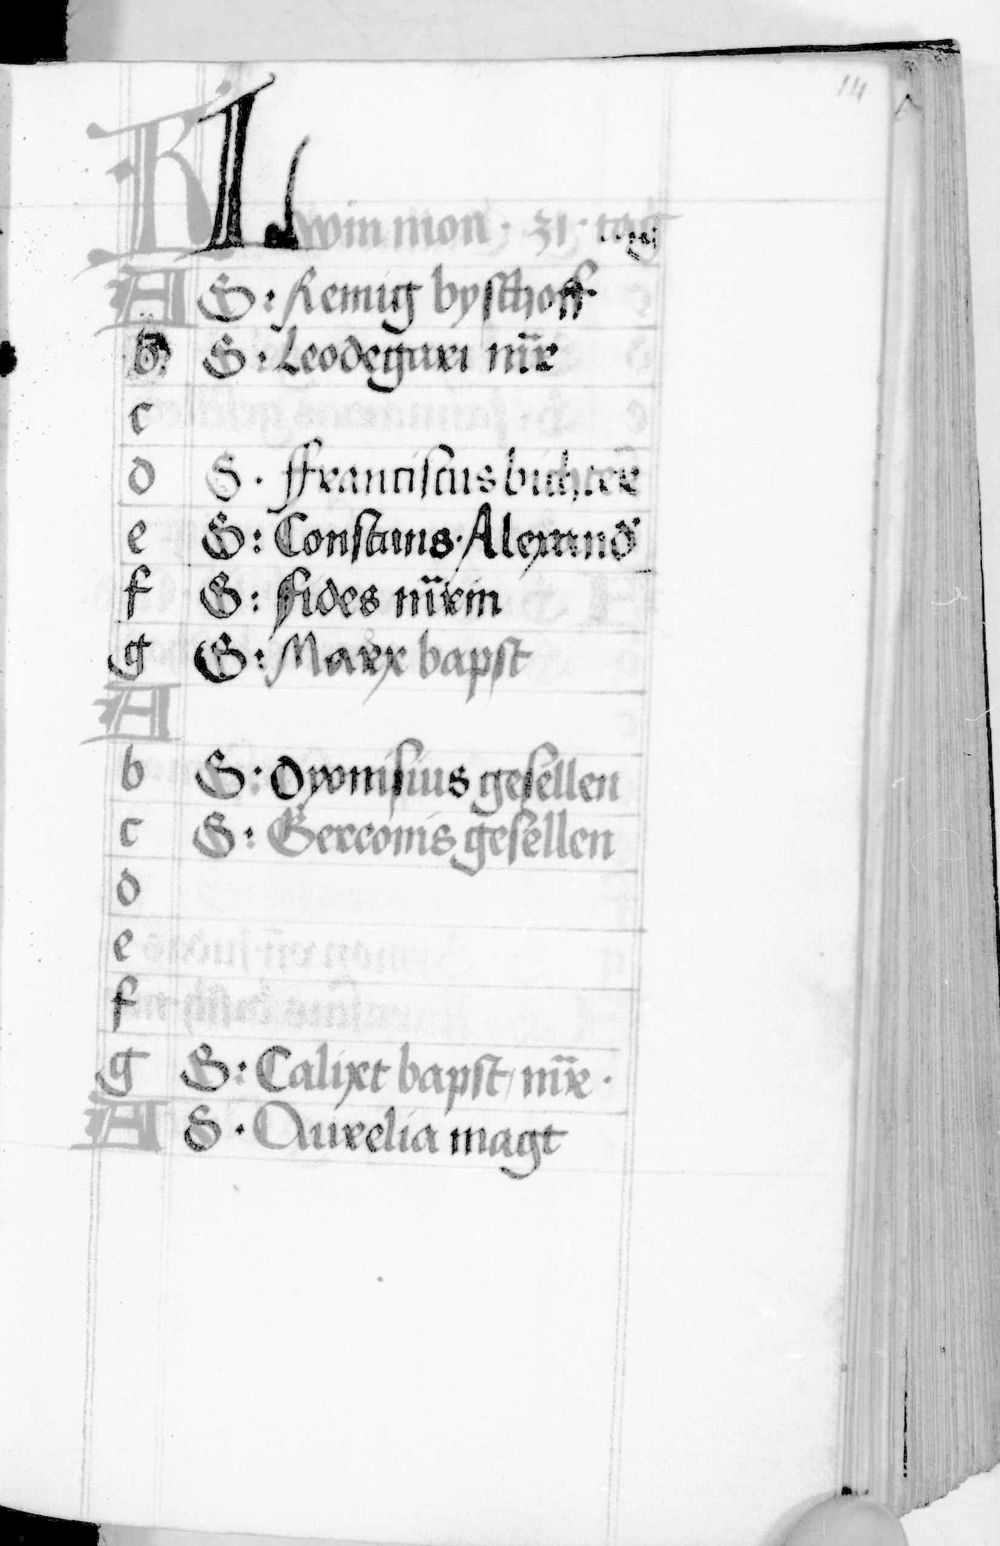 14
KL winmon · 31 · tag
A S: Remig byschoff
b S: Leodegari mr̄
c
d S · Franciscus bichter
e S: Constans · Alexand
f S: Fides mr̄in
g S: Marx bapst
A
b S: Dyonisius gesellen
c S: Gereonis gesellen
d
e
f
g S: Calixt bapst / mr̄ ·
A S · Aurelia magt